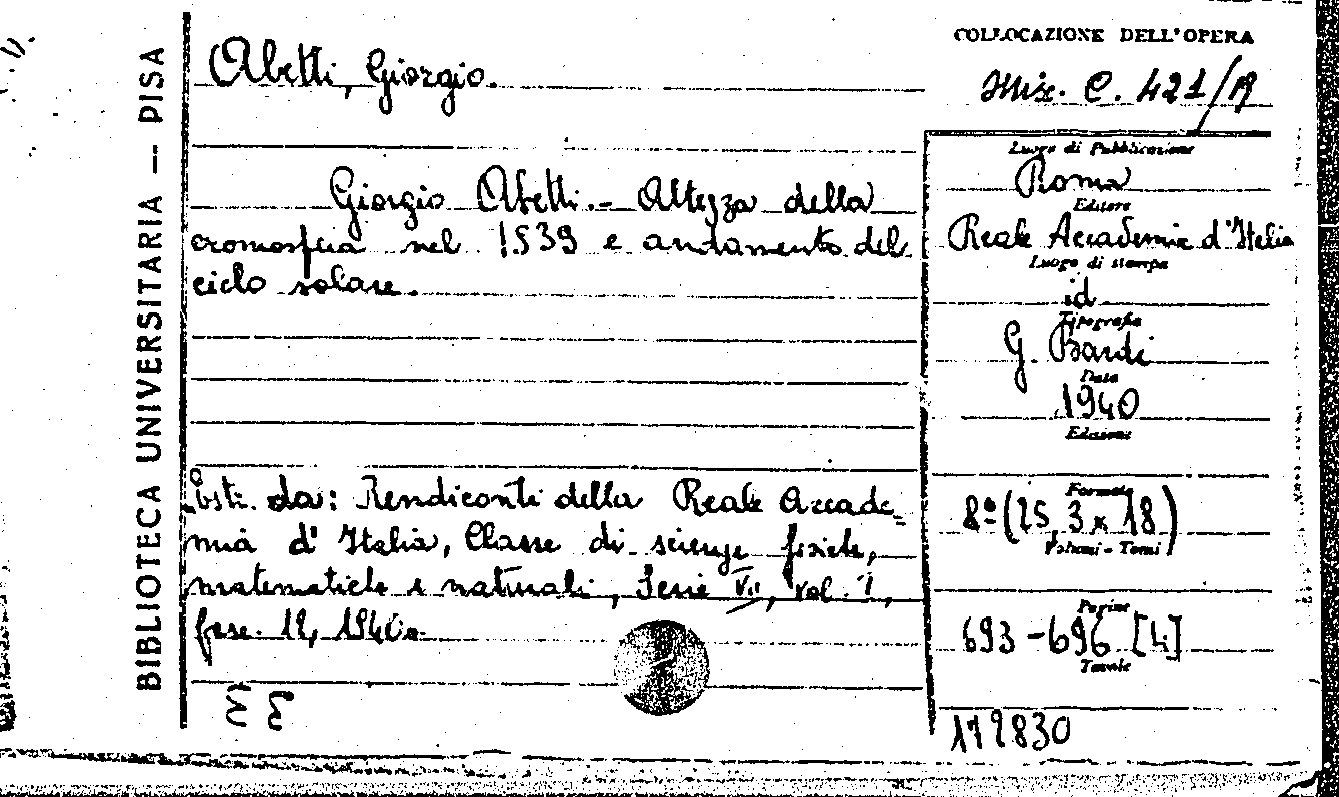 BIBLIOTECA UNIVERSITARIA — PISA
Abetti, Giorgio.
Giorgio Abetti. - Altezza della
cromosfera nel 1939 e andamento del
ciclo solare.
Estr. da: Rendiconti della Reale Accade-
mia d'Italia, Classe di scienze fisiche,
matematiche e naturali, Serie VII, vol. 1,
fasc. 12, 1940.
COLLOCAZIONE DELL'OPERA
Misc. C. 421/19
Luogo di Pubblicazione
Roma
Editore
Reale Accademia d'Italia
Luogo di stampa
id
Tipografia
G. Bardi
Data
1940
Edizione
Formato
8º (25,3 x 18)
Volumi - Tomi
Pagine
693-696 [4]
Tavole
172830